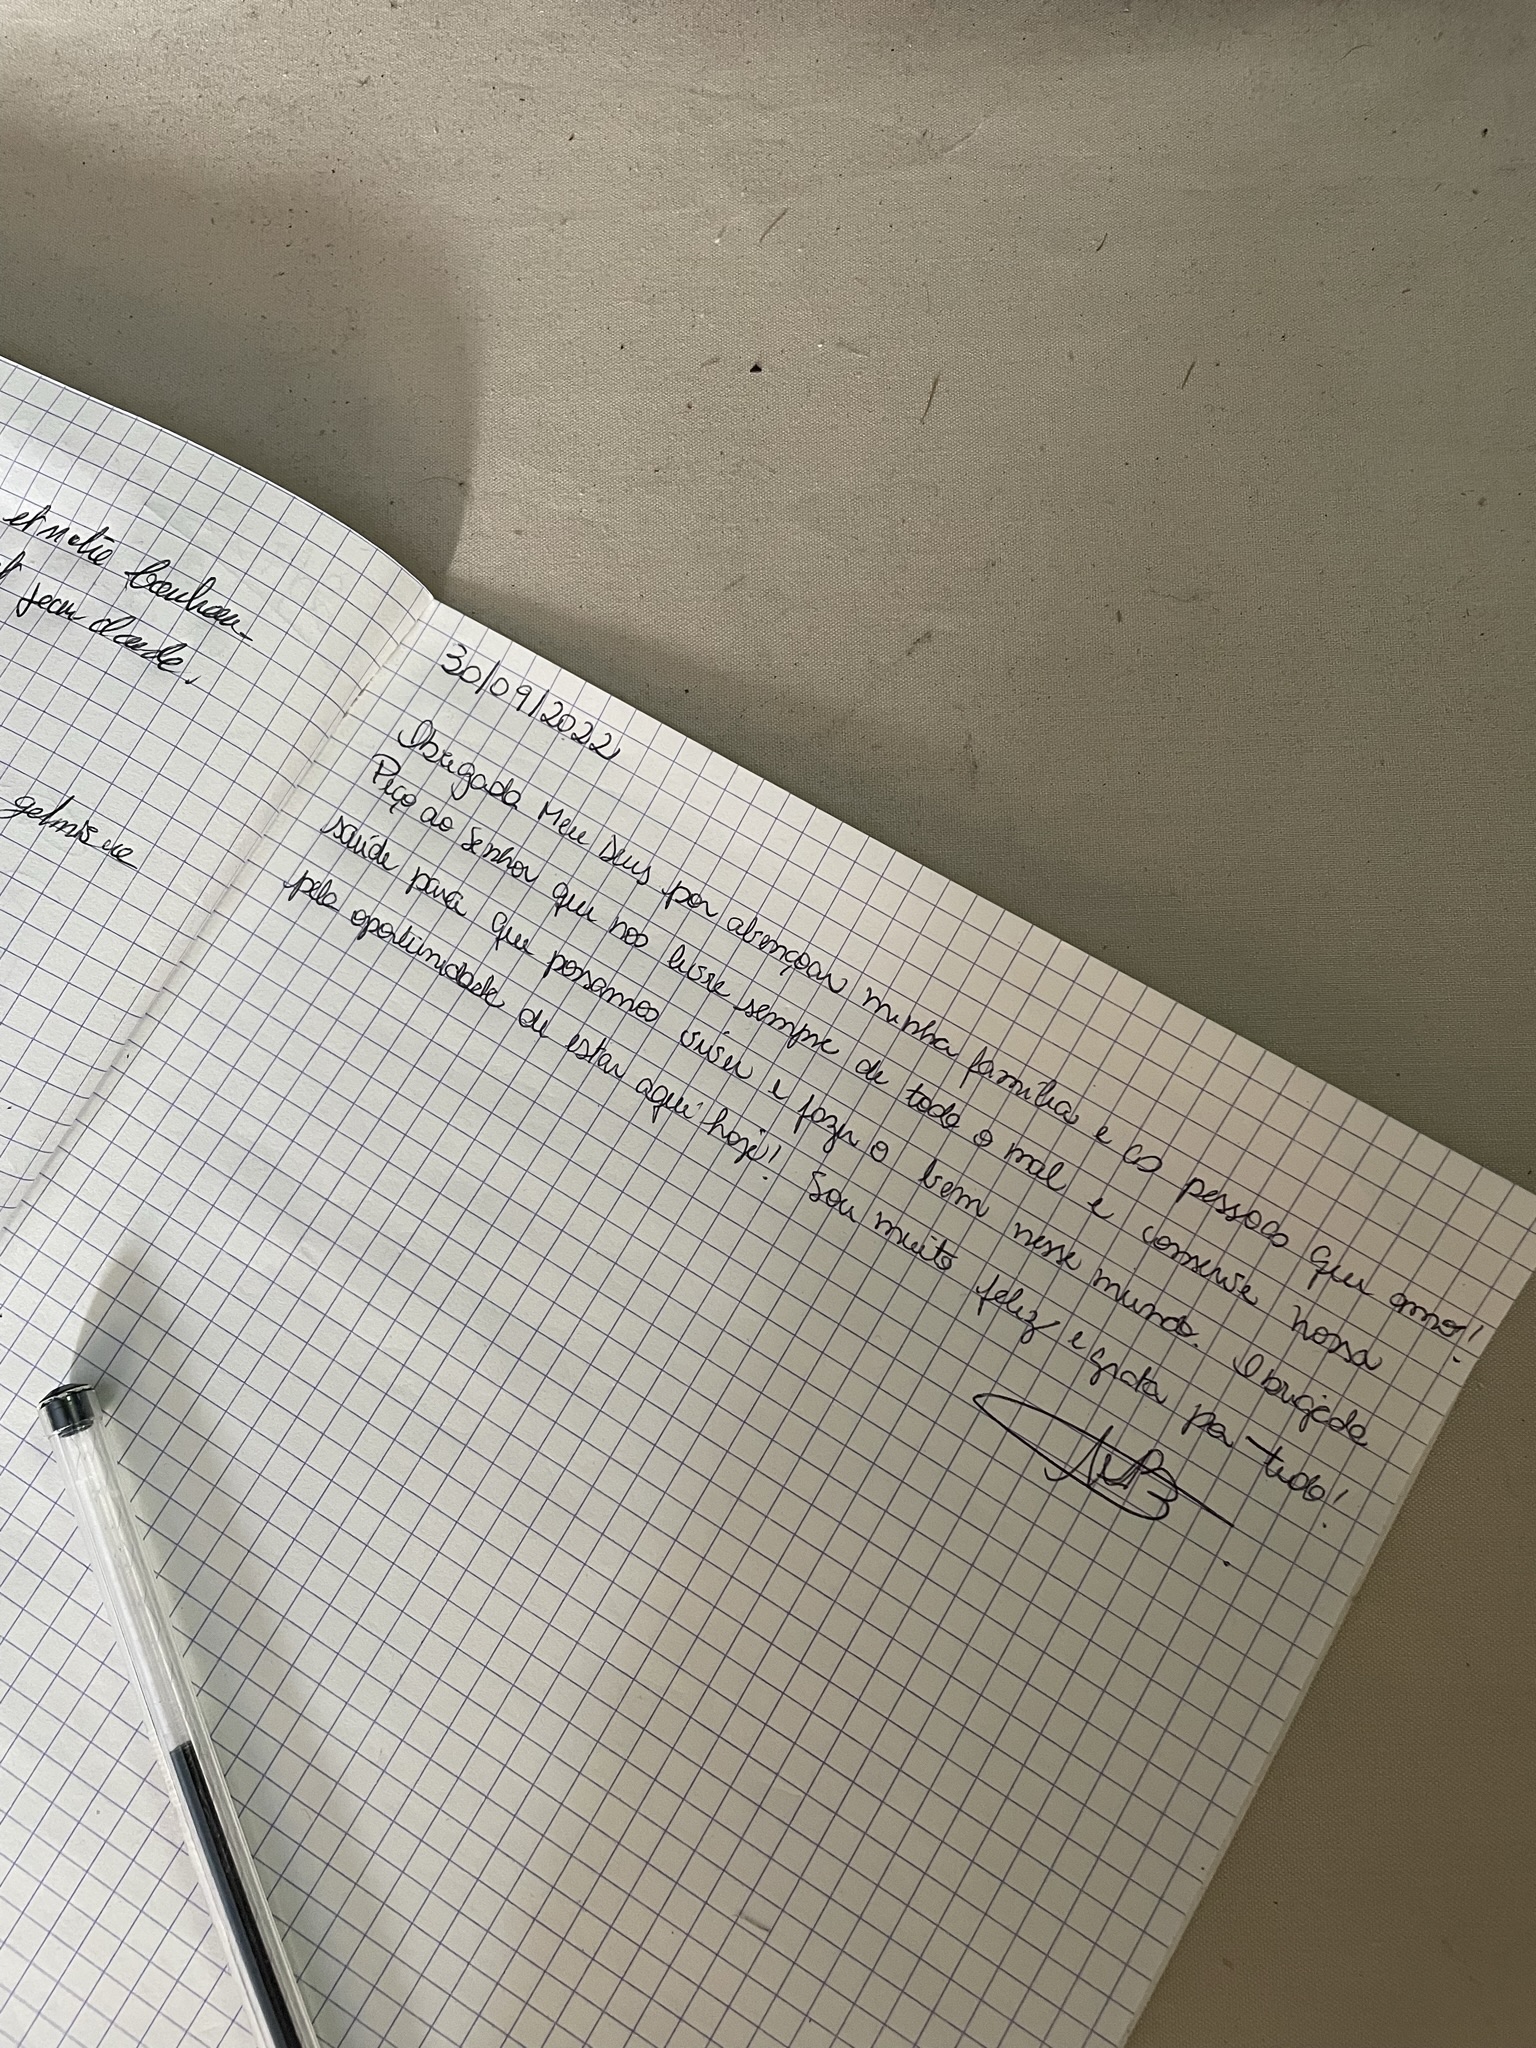 et notre bonheur
jean claude.
30/09/2022
Obrigada Meu Deus por abençoar minha família e as pessoas que amo!
Peço ao Senhor que nos livre sempre de todo o mal e conserve nossa
saúde para que possamos viver e fazer o bem nesse mundo. Obrigada
pela oportunidade de estar aqui hoje! Sou muito feliz e grata por tudo!